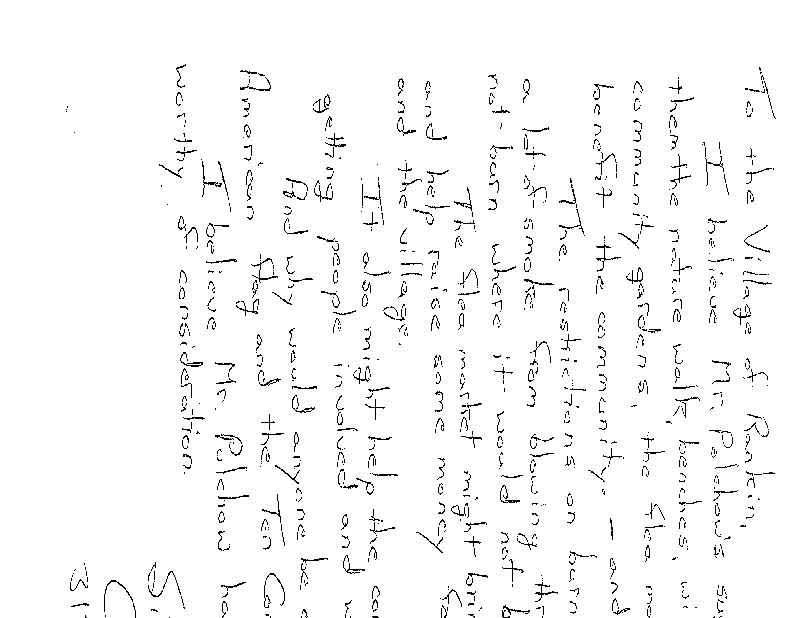 To the Village of Rankin,
I believe Mr. Polchow's su
them the nature walk, benches, wi
community gardens, the flea ma
benefit the community. – and
The restrictions on burn
a lot of smoke from blowing thr
not burn where it would not b
The flea market might brin
and help raise some money fo
and the village.
It also might help the co
getting people involved and w
And why would anyone be o
American flag and the Ten Com
I believe Mr. Polchow ha
worthy of consideration.
Si
C
31